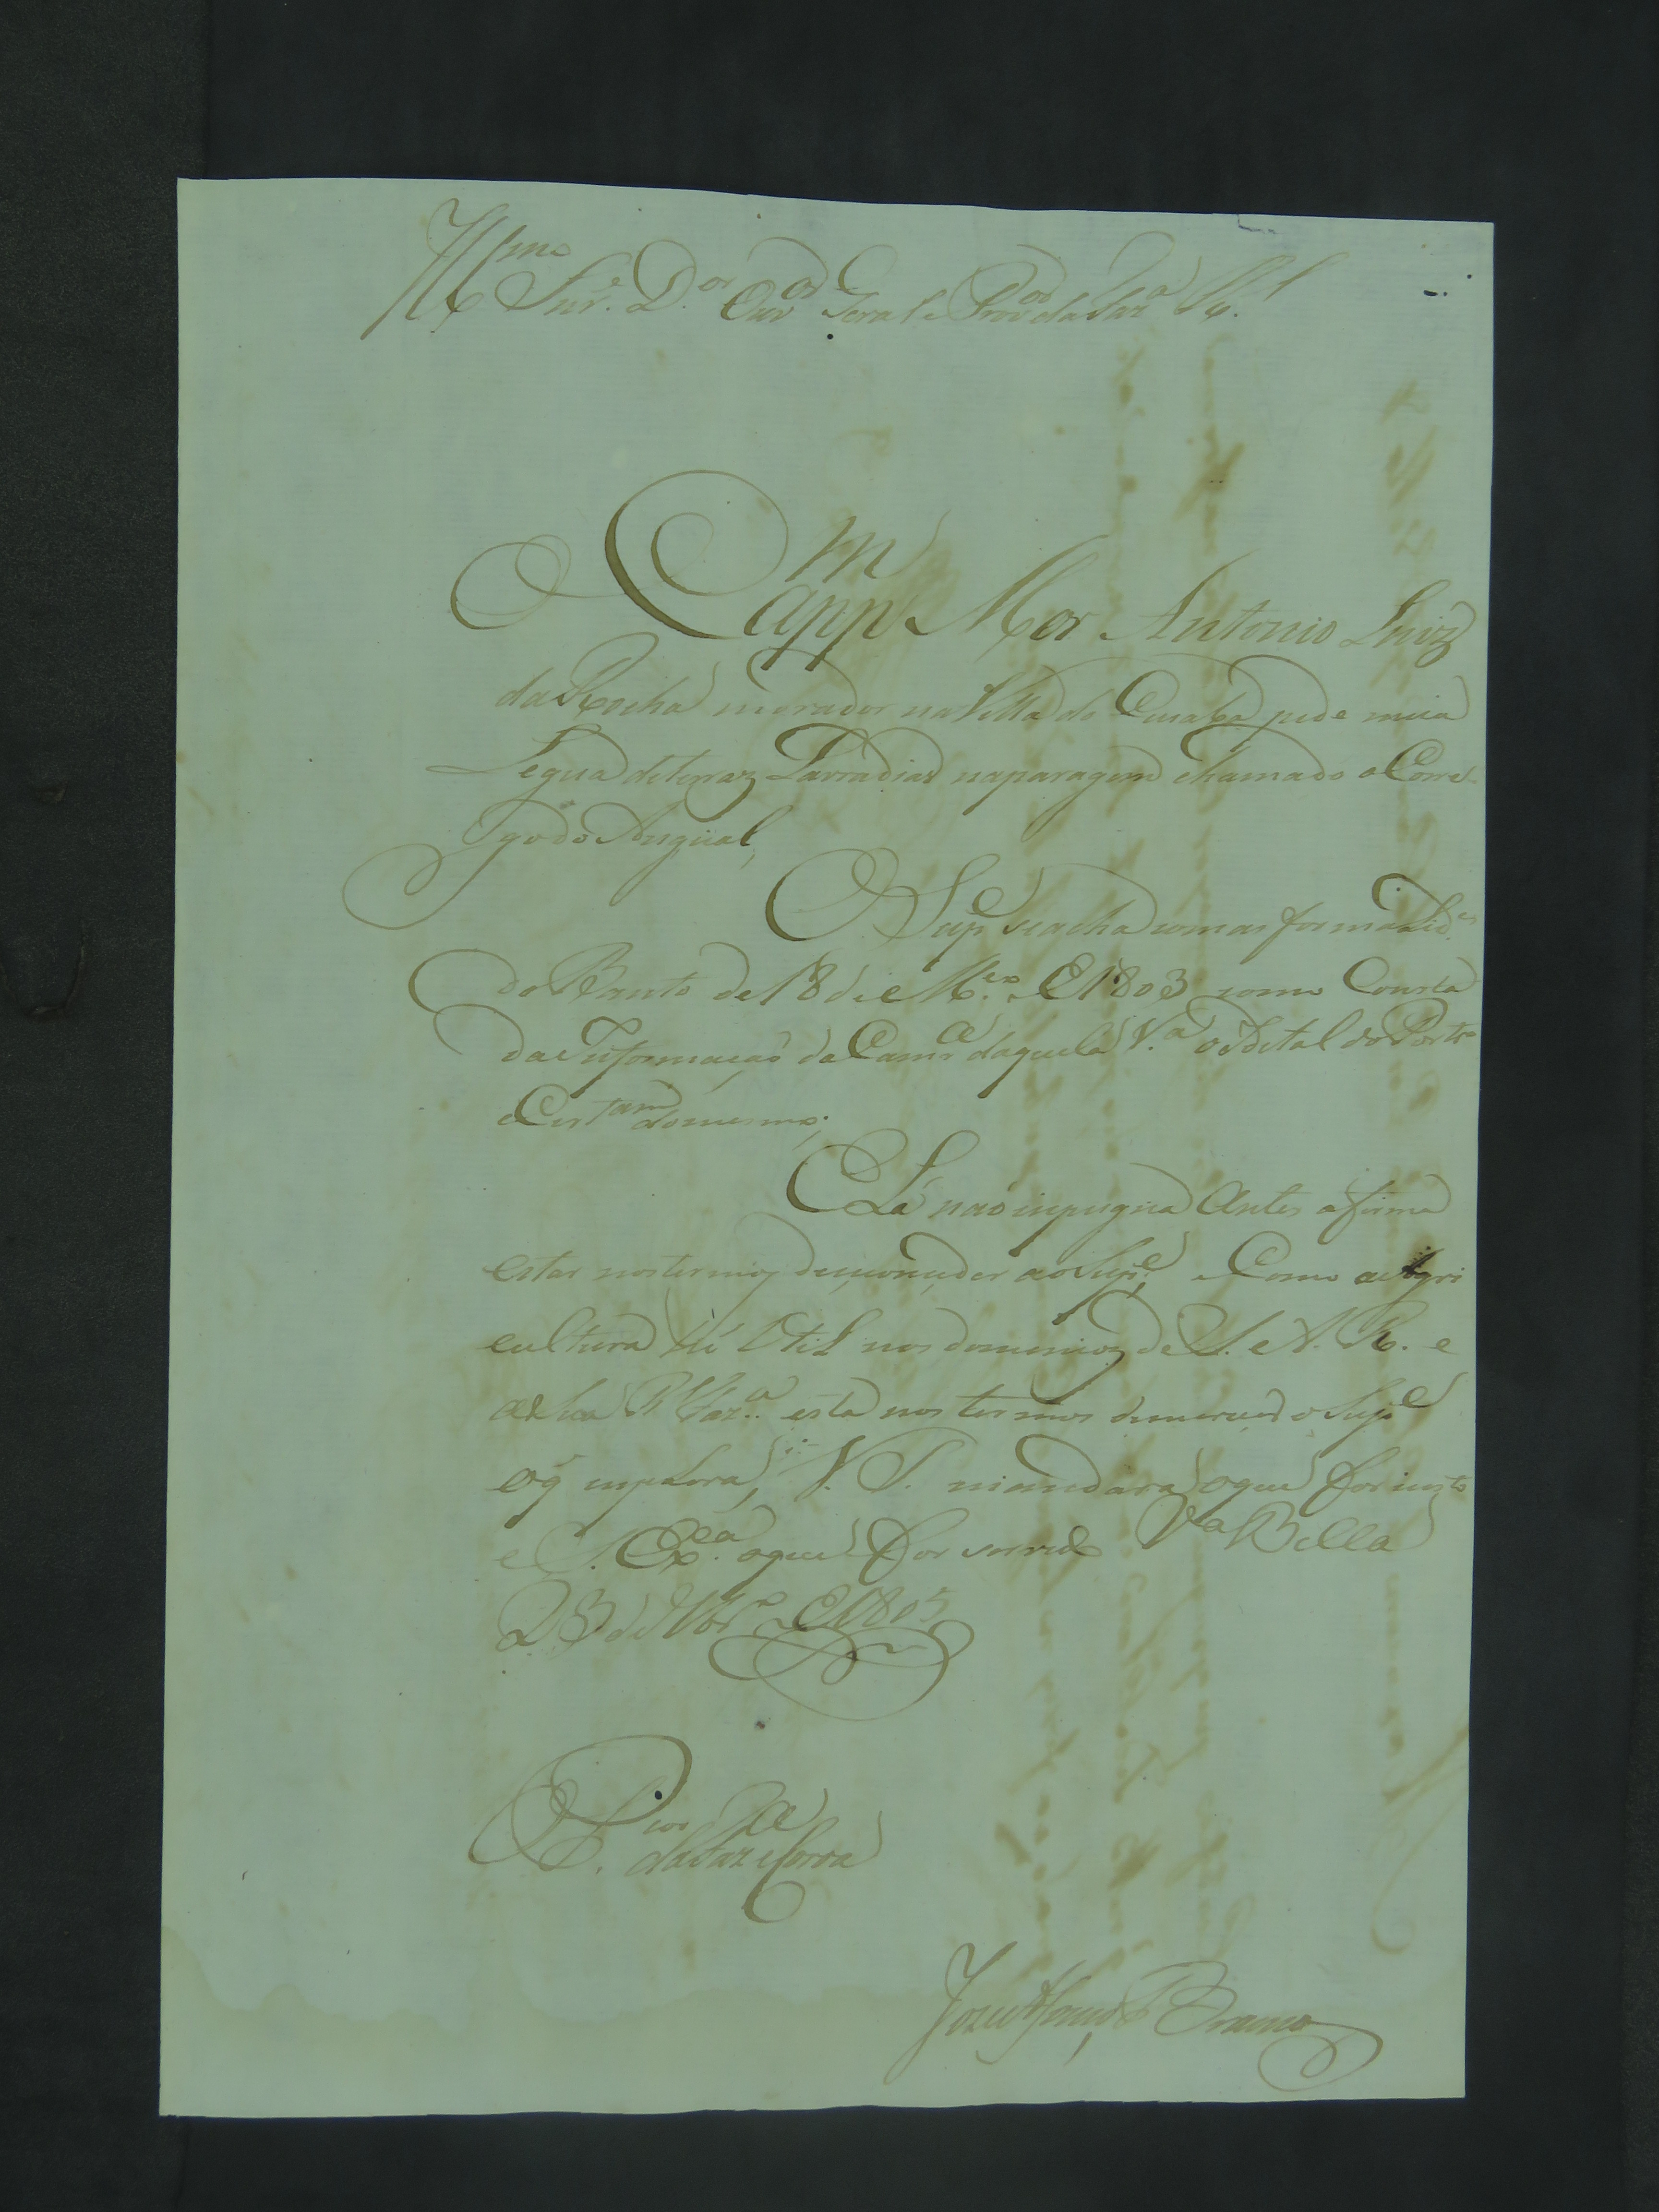 Illmo Snr. Dor. Ouvor Geral e Provor da Fazª Rl.
O Cappm Mor Antonio Luiz
da Rocha morador na Villa do Cuiabá pede meia
Legua de terraz Lavradias na paragem chamado o Corre
go do
O Supe se acha com as formalides
do Bando de 18 de 1803 como Consta
da Informaçaõ da Camrª daquela Vª o Edital do Porto
e Cert do mesmo;
Ella naõ inpugna Antes afirma
estar nos termoz de se conceder ao Supe, e Como a Agri
cultura hé Util nos dominioz de S. A. R. e
a sua Rl Fazª esta nos termos de merecer o Supe
o q̃ implora, V. S. mandara o que for justo
e S. Exciª o que for servido Vª Bella
23 de 1805
O P. cor da Faze e Coroa
Joze Afonço Branco